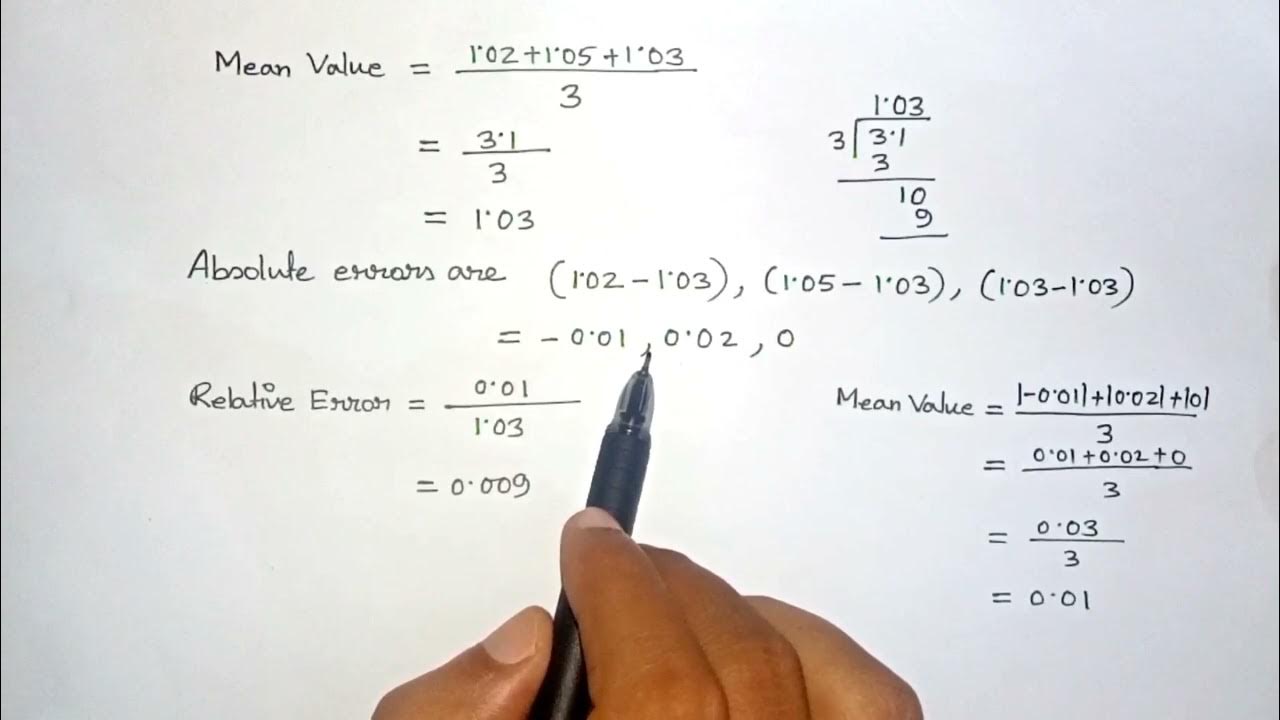 Mean Value = 1·02+1·05+1·03
3
= 3·1
3
= 1·03
1·03
3 3·1
3
10
9
Absolute errors are (1·02 – 1·03), (1·05 – 1·03), (1·03 – 1·03)
= – 0·01 , 0·02 , 0
Relative Error = 0·01
1·03
= 0·009
Mean Value = |-0·01|+|0·02|+|0|
3
= 0·01+0·02+0
3
= 0·03
3
= 0·01